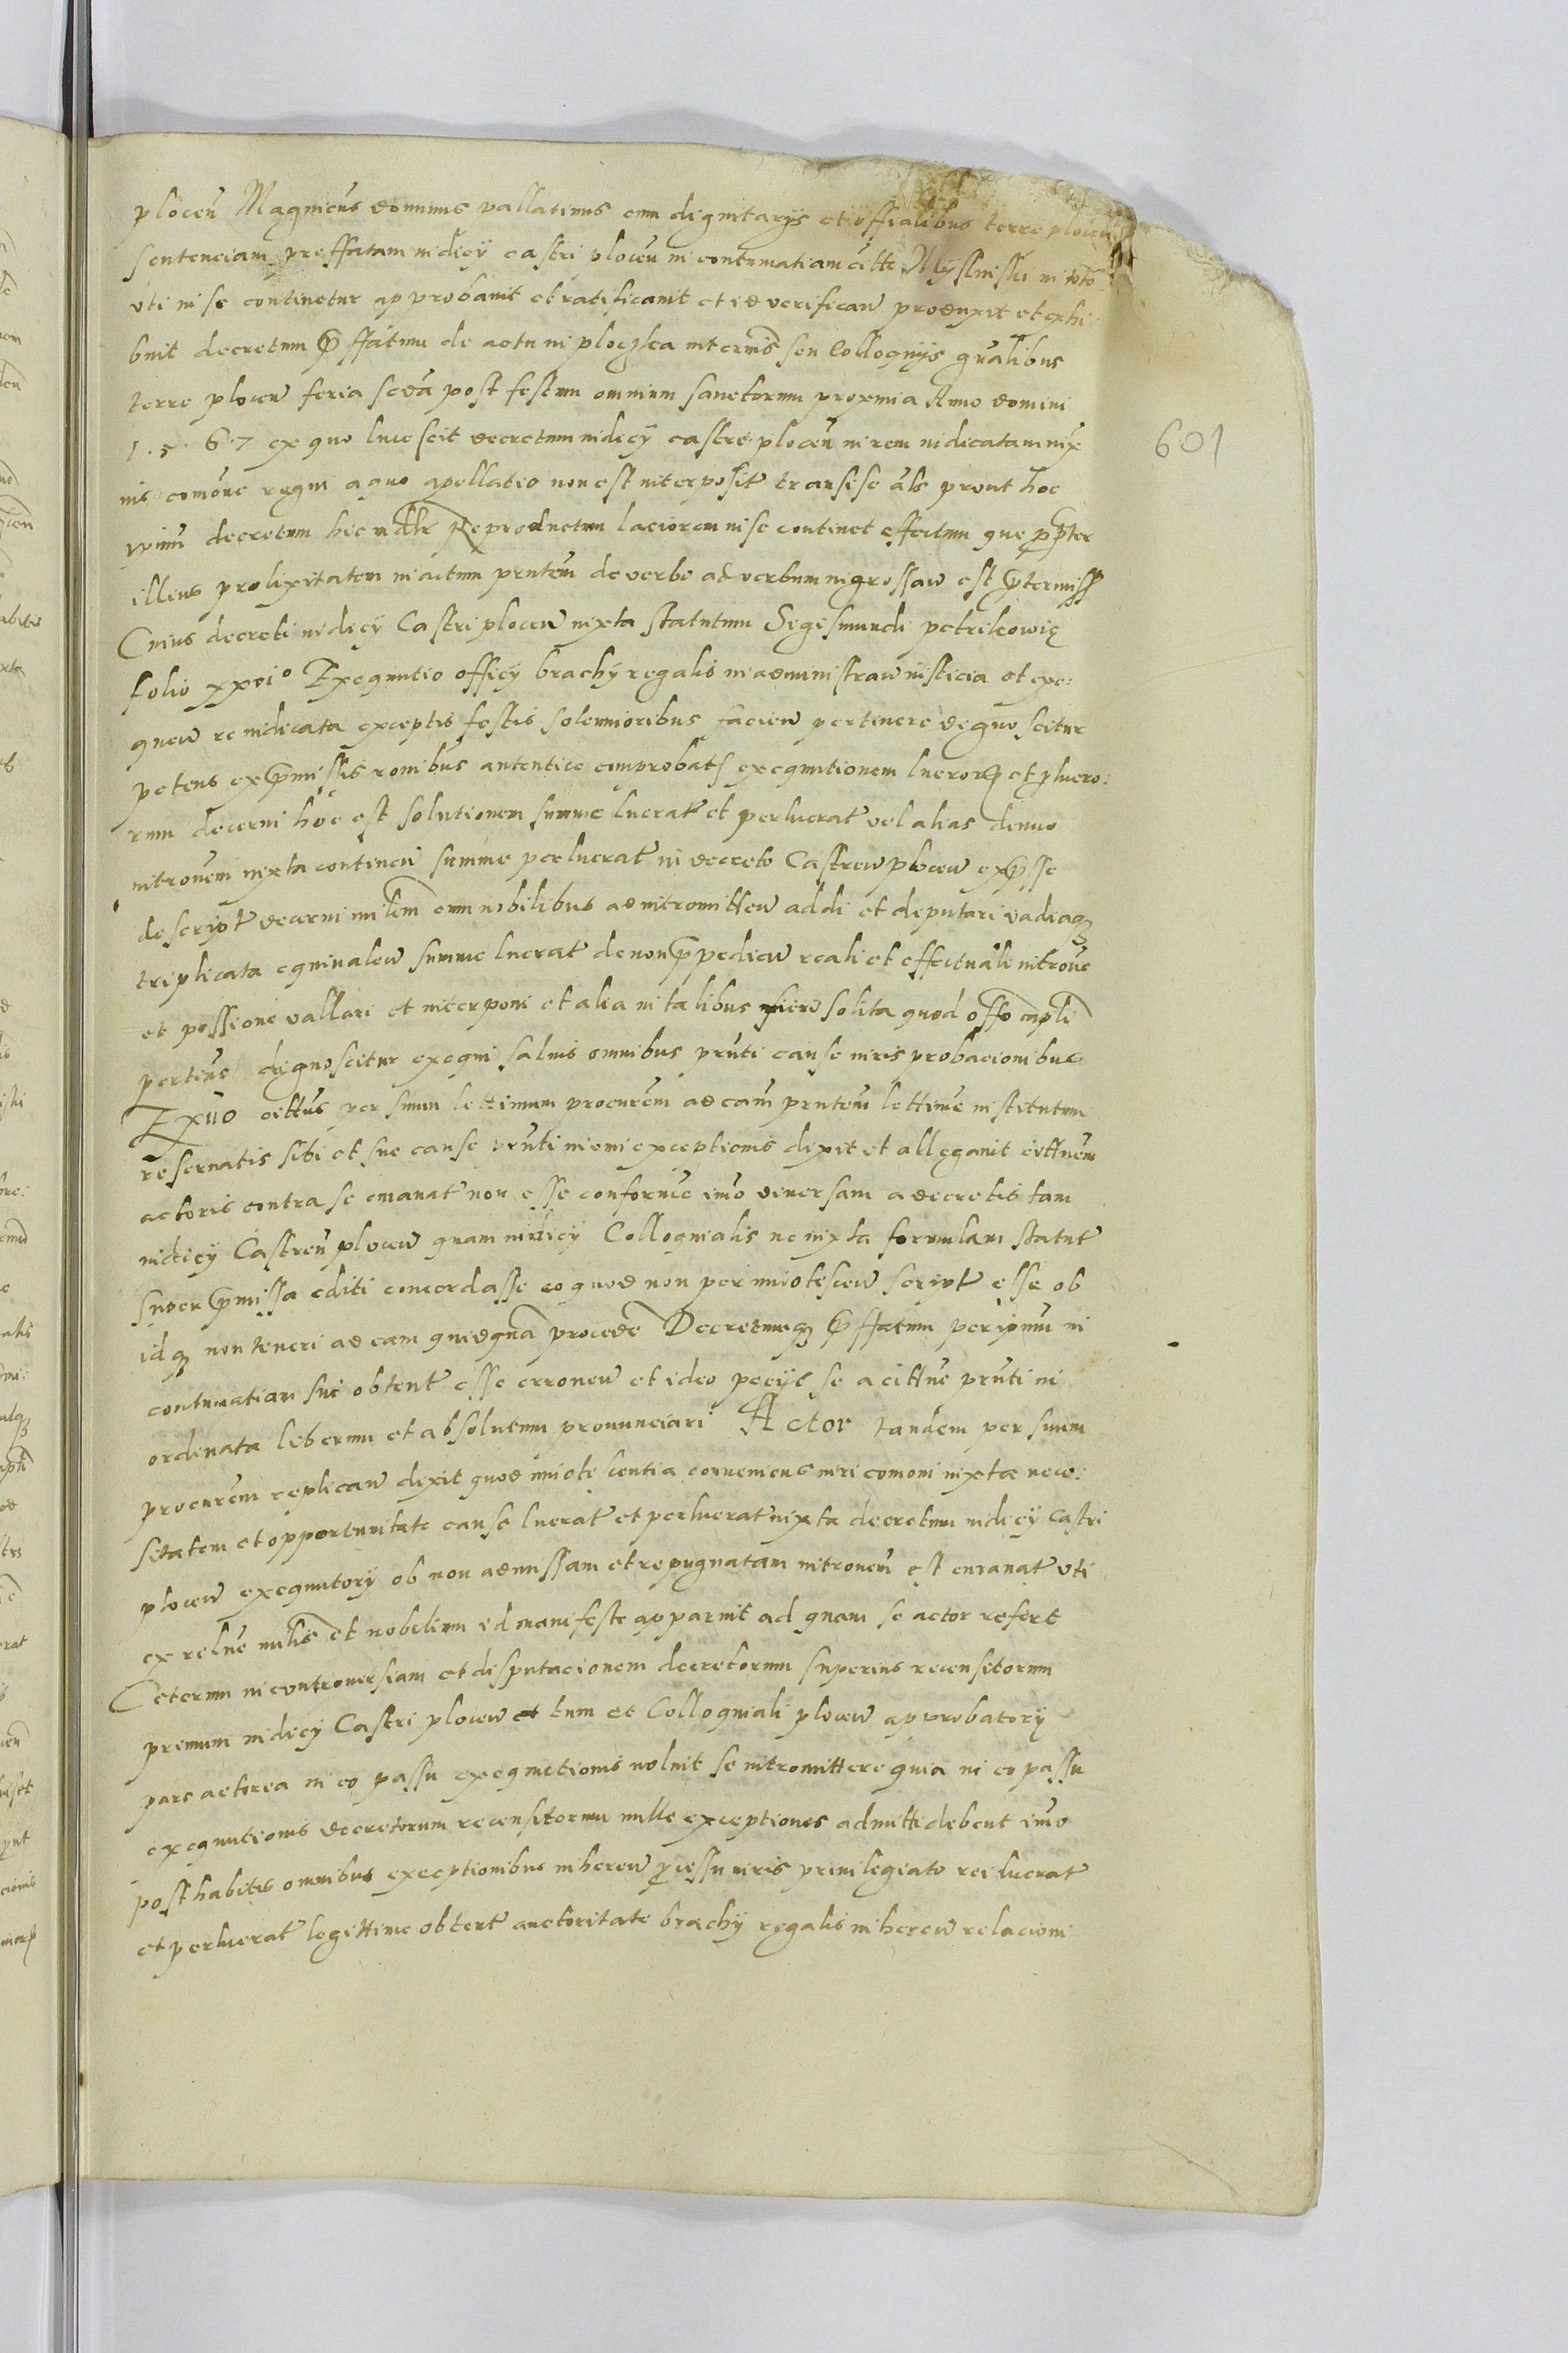 plocen Magnicus dominus pallatinus cum dignitarijs et officialibus terre plocen
sentenciam preffatam iudicij castri plocen in contumatiam citte Mijslinski in toto
vti in se continetur approbauit et ratificauit et id verifican produxit et exhi
buit decretum preffatum de actu in ploczka in terminis seu Colloquijs gnralibus
terre plocen feria scda post festum omnium sanctorum proximia Anno domini
1. 5. 6. 7 ex quo lucescit decretum iudicij castri plocen in rem iudicatam iux
ius comone regni a quo apellatio non est interposit transisse als prout hoc
ipsum decretum hic iudlr Reproductum laciorem in se continet effectum que propter
illius prolixitatem in actum prntem de verbo ad verbum ingrossan est ptermiss
Cuius decreti iudicij Castri plocen iuxta statutum Sigismundi petrikowie
folio xxvio Exequutio officij brachij regalis in administran iusticia et exe:
quen re iudicata exceptis festis solemnioribus facien pertinere dignoscitur
petens ex pmissis ronibus autentice comprobats exequutionem lucror et plucro:
rum decerni hoc est solutionem summe lucrat et perlucrat vel alias denuo
intronem iuxta continen summe perlucrat in decreto Castren plocen expsse
descript decerni milem cum nobilibus ad intromitten addi et deputari vadiaq
triplicata equiualen summe lucrat de non ppedien reali et effectuali introne
et possione vallari et interponi et alia in talibus fieri solita quod offo capli
pertins dignoscitur exequi saluis omnibus prnti cause iuris probacionibus
Ex uo cittus per suum lettimum procurem ad cam prntem lettime institutum
reseruatis sibi et sue cause prnti in omi exceptionis dixit et allegauit cittnem
actoris contra se emanat non esse conforme imo diuersam a decretis tam
iudicij Castren plocen quam iudicij Colloquialis ne iuxta formulam statut
super pmissa editi concordasse eo quod non per iniotescen script esse ob
idq non teneri ad eam quidquam procede Decretumq preffatum per ipsum in
contumatiam sui obtent esse erroneu et ideo peciit se a cittne prnti in
ordinata liberum et absolutum pronunciari Actor tandem per suum
procurem replican dixit quod iniotescentia conueniens iuri comoni iuxta nece:
sitatem et opportunitate cause lucrat et perlucrat iuxta decretum iudicij Castri
plocen exequutorij ob non admissam et repugnatam intronem est emanat vti
ex relne milis et nobilium id manifeste apparuit ad quam se actor refert
Ceterum in controuersiam et disputacionem decretorum superius recensitorum
primum iudicij Castri plocen et tum et Colloquiali plocen approbatorij
pars actorea in eo passu exequutionis noluit se intromittere quia in eo passu
exequutionis decretorum recensitorum nulle exceptiones admitti debent imo
posthabitis omnibus exceptionibus inheren pcessu iuris priuilegiato rei lucrat
et perlucrat legittime obtent auctoritate brachij regalis inheren relacioni
601